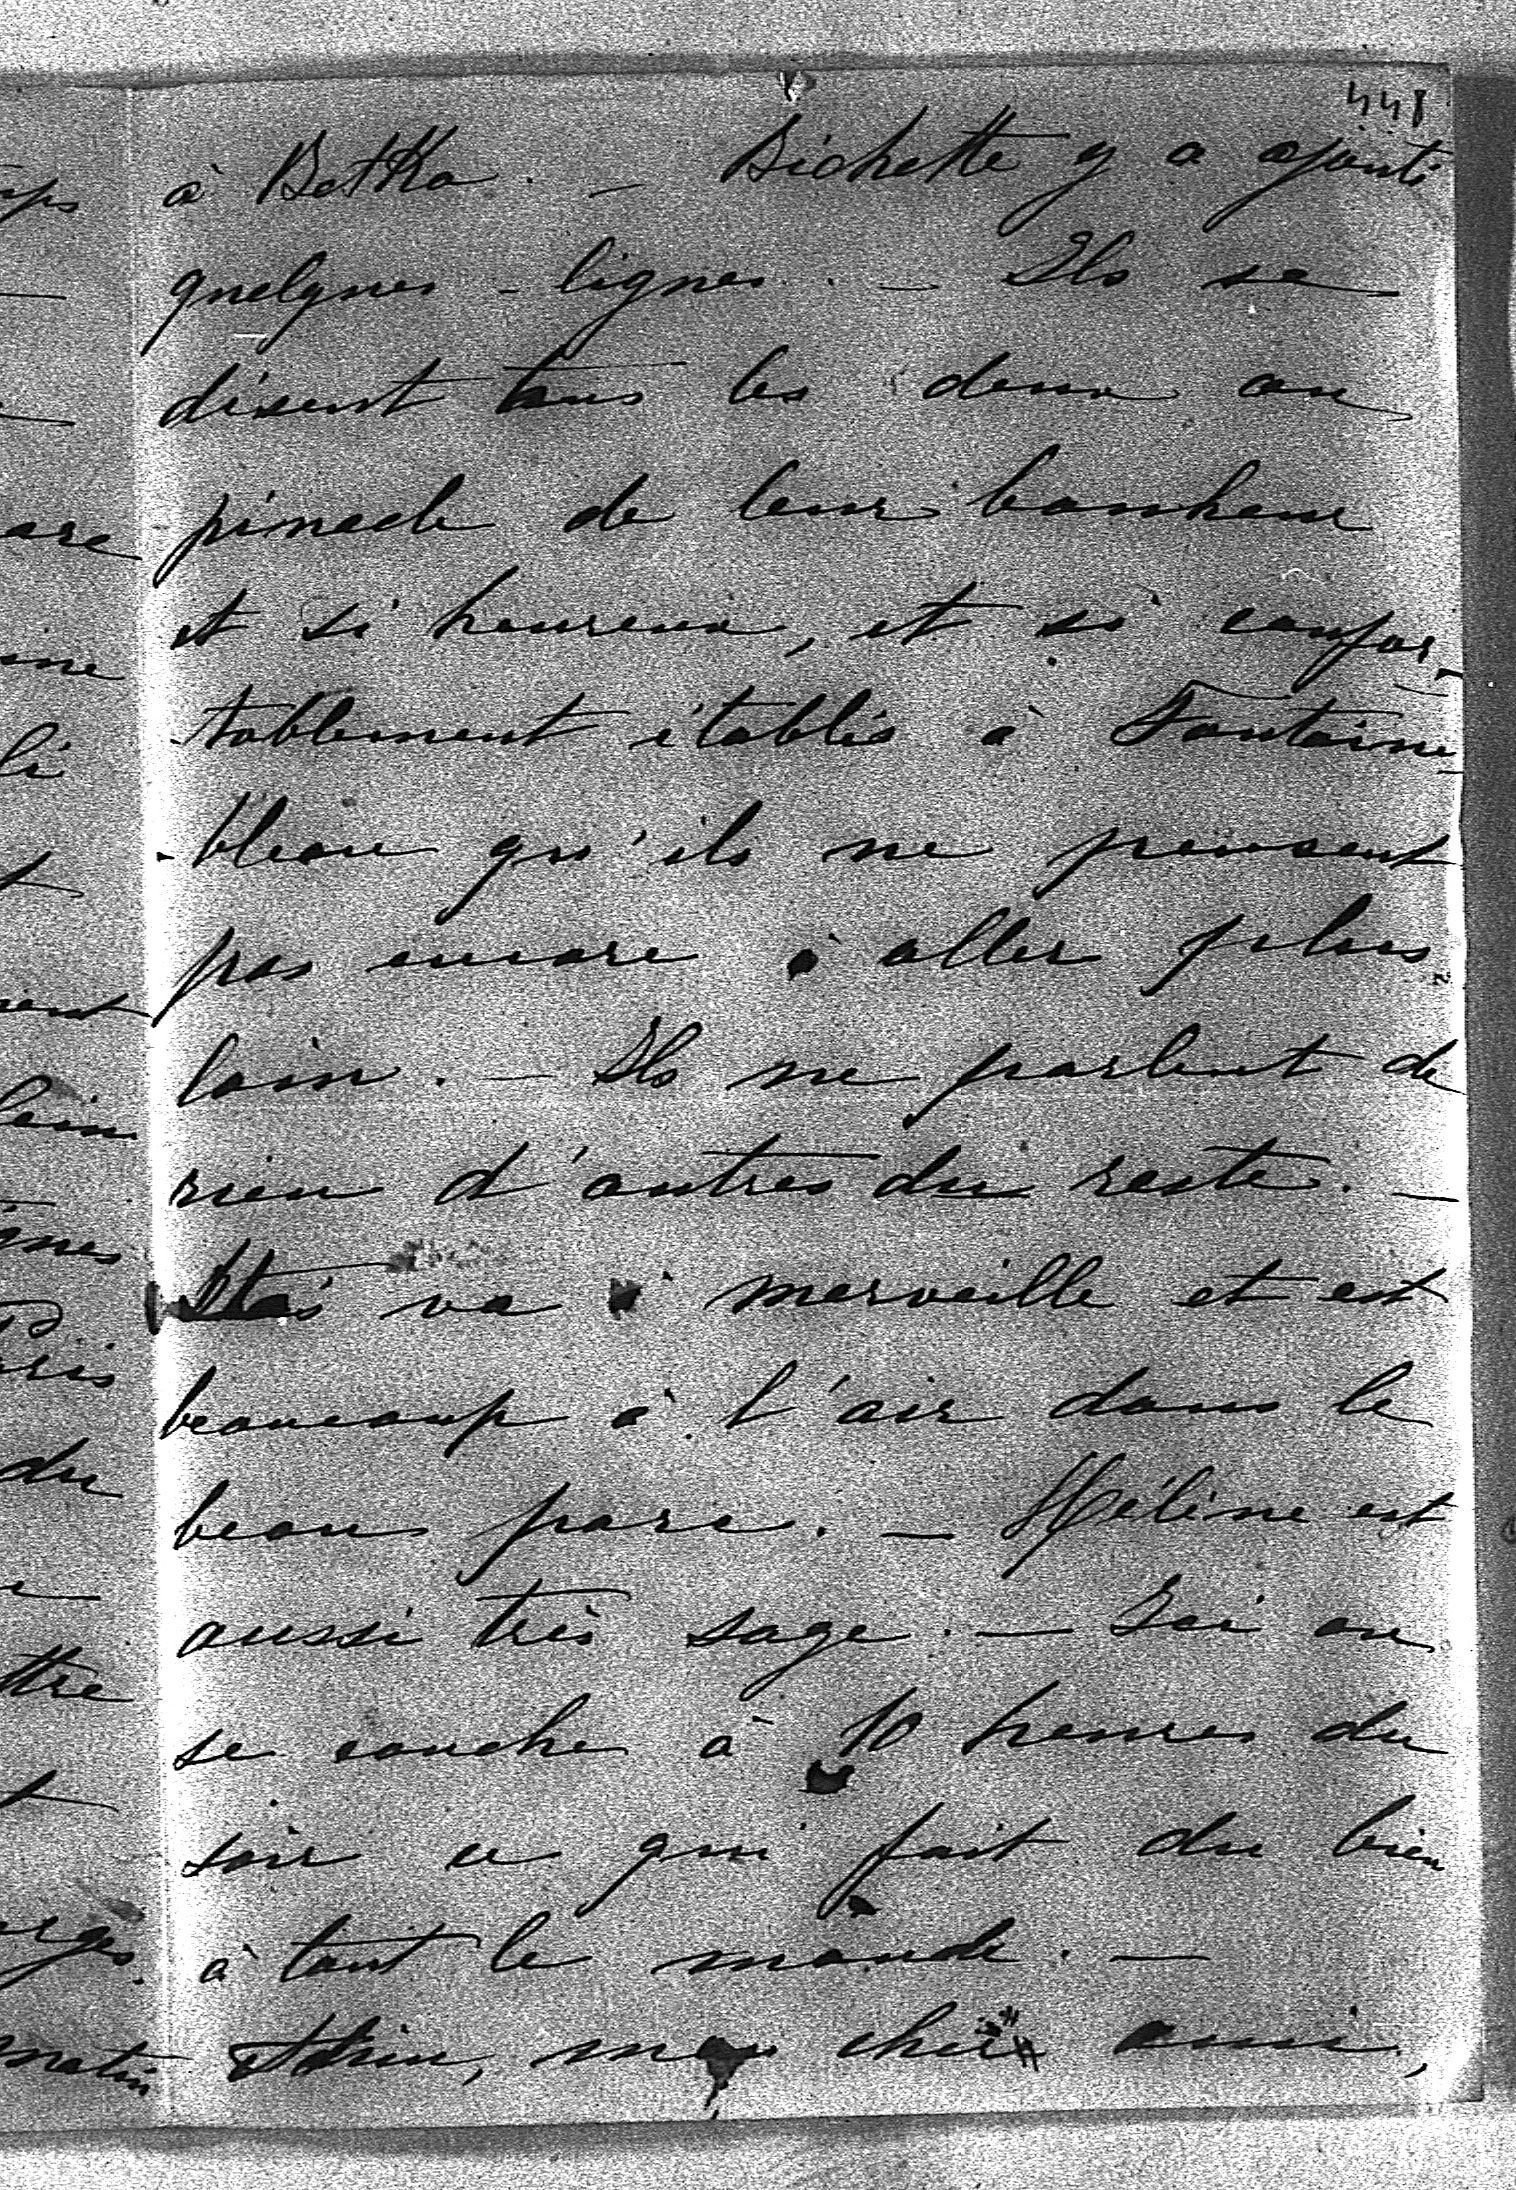 441
à Betka. — Bichette y a ajouté
quelques - lignes. — Ils se
disent tous les deux au
pinacle de leur bonheur
et si heureux, et si confor-
tablement établis à Fontaine-
-bleau qu'ils ne pensent
pas encore à aller plus
loin. — Ils ne parlent de
rien d'autres du reste. —
Stas va à merveille et est
beaucoup à l'air dans le
beau parc. — Hélène est
aussi très sage. — Ici on
se couche à 10 heures du
soir ce qui fait du bien
à tout le monde. —
Adieu, mon cher ami,
are
ine
li
ient
gnes
Paris
du
ttre
matin